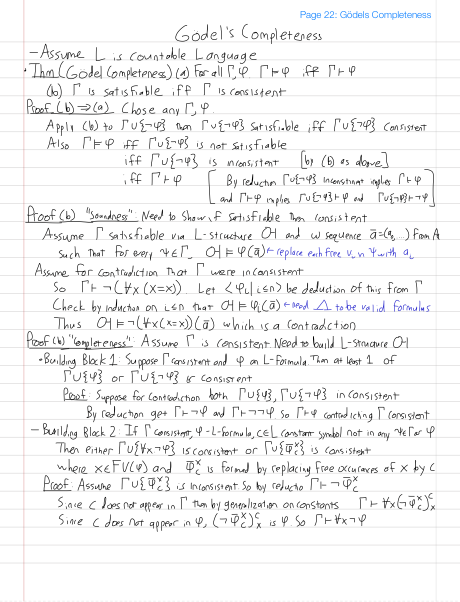 Page 22: Gödels Completeness
Gödel's Completeness
- Assume L is countable Language
• Thm (Gödel Completeness) (a) For all Γ, φ Γ⊨φ iff Γ⊢φ
(b) Γ is satisfiable iff Γ is consistent
Proof (b) ⇒ (a) Chose any Γ, φ.
Apply (b) to Γ∪{¬φ} then Γ∪{¬φ} satisfiable iff Γ∪{¬φ} consistent
Also Γ⊨φ iff Γ∪{¬φ} is not satisfiable
iff Γ∪{¬φ} is inconsistent [by (b) as above]
iff Γ⊢φ [By reductio Γ∪{¬φ} inconsistent implies Γ⊢φ
and Γ⊢φ implies Γ∪{¬φ}⊢φ and Γ∪{¬φ}⊢¬φ]
Proof (b) "Soundness": Need to Show if satisfiable then consistent
Assume Γ satisfiable via L-structure 𝔄 and ω sequence ā=(a₀,...) from A
such that for every ψ∈Γ, 𝔄⊨ψ(ā) ← replace each free vᵢ in ψ with aᵢ
Assume for contradiction that Γ were inconsistent
So Γ⊢¬(∀x(x=x)) Let <φᵢ| i≤n> be deduction of this from Γ
Check by induction on i≤n that 𝔄⊨φᵢ(ā) ← need Λ to be valid formulas
Thus 𝔄⊨¬(∀x(x=x))(ā) which is a contradiction
Proof (b) "Completeness": Assume Γ is consistent Need to build L-structure 𝔄
• Building Block 1: Suppose Γ consistent and φ an L-formula. Then at least 1 of
Γ∪{φ} or Γ∪{¬φ} is consistent
Proof: Suppose for contradiction both Γ∪{φ}, Γ∪{¬φ} inconsistent
By reductio get Γ⊢¬φ and Γ⊢¬¬φ so Γ⊢φ contradicting Γ consistent
- Building Block 2: If Γ consistent, φ - L-formula, c∈L constant symbol not in any ψ∈Γ or φ
Then either Γ∪{∀x¬φ} is consistent or Γ∪{φ̄ˣ_c} is consistent
where x∈FV(φ) and φ̄ˣ_c is formed by replacing free occurances of x by c
Proof: Assume Γ∪{φ̄ˣ_c} is inconsistent so by reductio Γ⊢¬φ̄ˣ_c
Since c does not appear in Γ then by generalization on constants Γ⊢∀x(¬φ̄ˣ_c)ᶜₓ
Since c does not appear in φ, (¬φ̄ˣ_c)ᶜₓ is φ So Γ⊢∀x¬φ